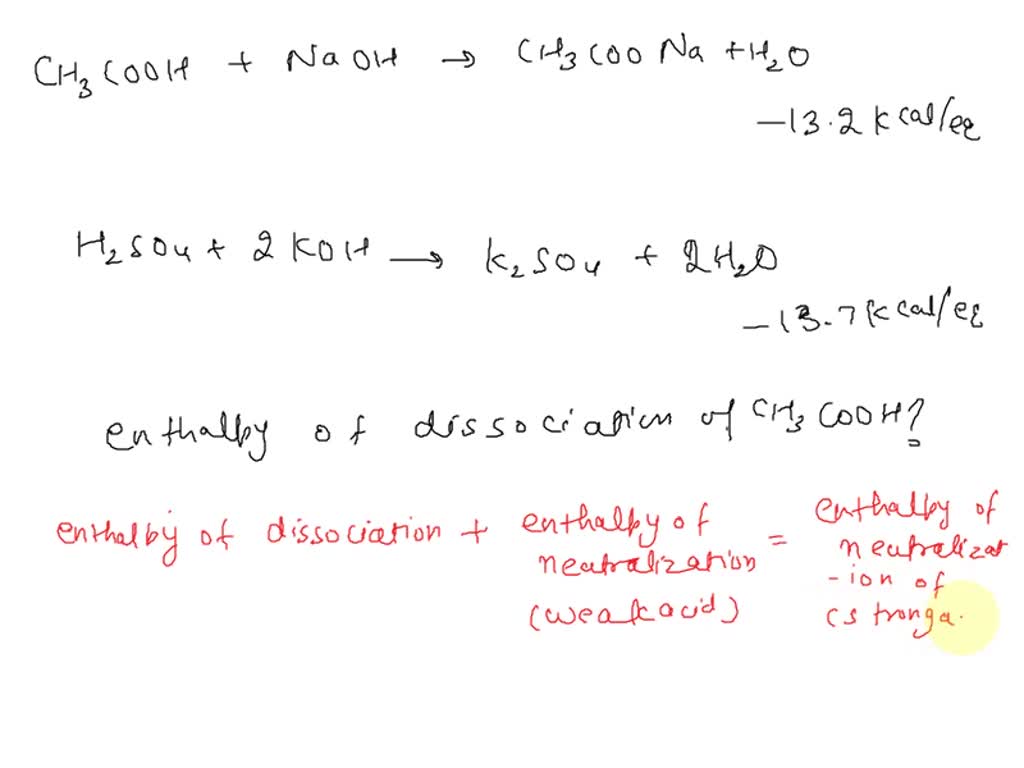 CH3COOH + NaOH → CH3COONa + H2O
-13.2 kcal/eq
H2SO4 + 2KOH → K2SO4 + 2H2O
-13.7 kcal/eq
enthalpy of dissociation of CH3COOH?
enthalpy of dissociation + enthalpy of neutralization (weak acid) = enthalpy of neutralizat-ion of (stronga.